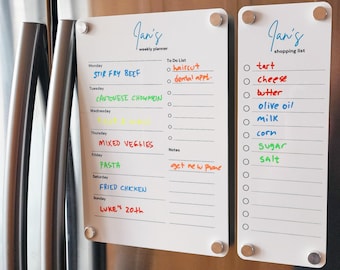 Jan's
weekly planner
Monday
STIR FRY BEEF
Tuesday
CANTONESE CHOWMEIN
Wednesday
Thursday
MIXED VEGGIES
Friday
PASTA
Saturday
FRIED CHICKEN
LUKE'S 20TH
To Do List
haircut
dental appt.
Notes
get new phone
Jan's
shopping list
tart
cheese
butter
olive oil
milk
corn
sugar
salt